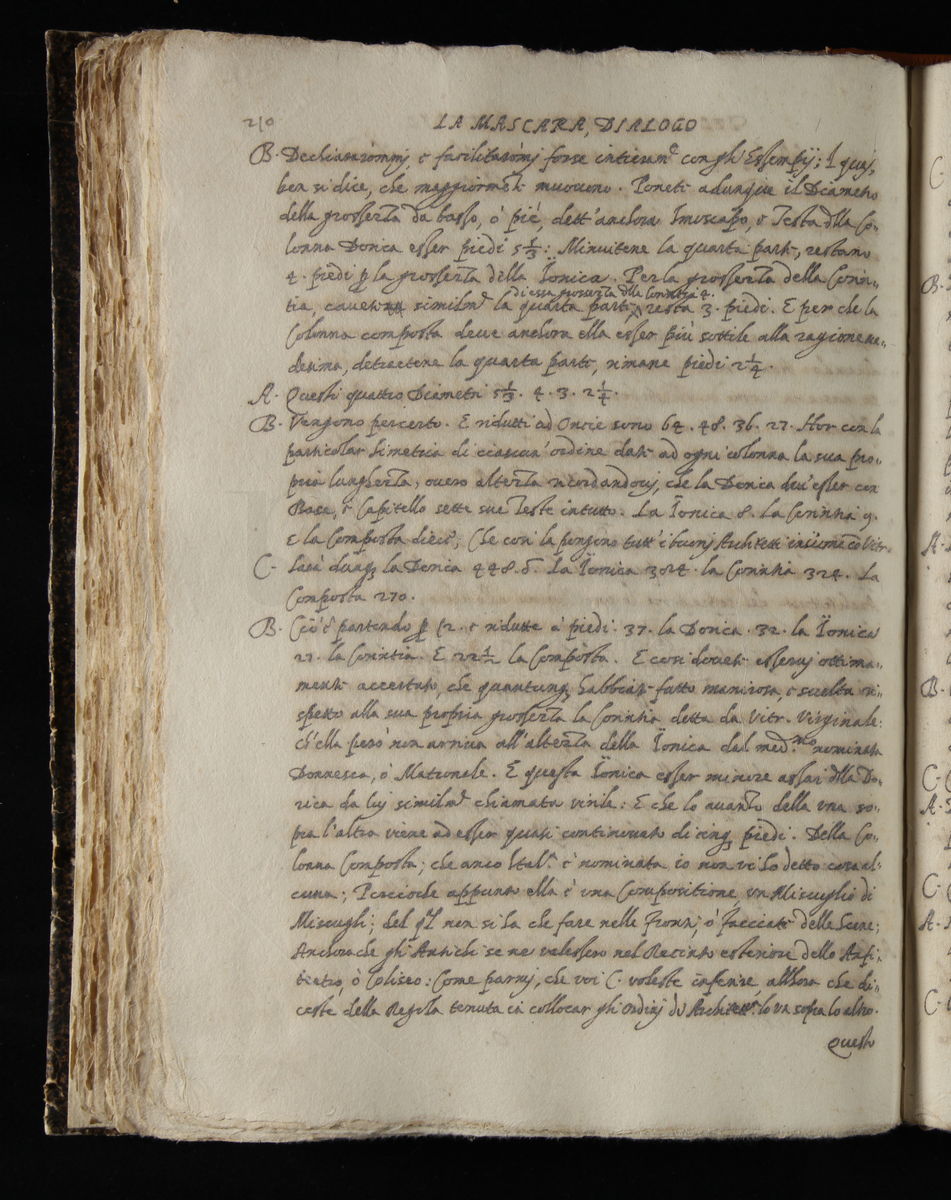 210
LA MASCARA, DIALOGO
B. Dechiarerommi, e faciliterommi forse intieram.e con gli Essempij; I quai,
ben si dice, che maggiorm.te muovono. Ponete adunque il Diametro
della grossezza da basso, ò piè, dett'anchora Imoscapo, o Testa d'lla Co„
lonna Dorica esser piedi 5 1/3: Minuitene la quarta parte, restano
4. piedi p la grossezza della Ïonica. Per la grossezza della Corin„
tia, cavete similm.e la quarta parte
di essa grossezza d'lla 4.
resta 3. piedi. E per che la
Colonna composta deve anchora ella esser più sottile alla ragione me„
desima, detraetene la quarta parte, rimane piedi 2 1/4.
A. Questi quattro Diametri 5 1/3. 4. 3. 2 1/4.
B. Vengono percerto. E ridutti ad Oncie sono 64. 48. 36. 27. Hor con la
particolar Simetria di ciascun'ordine date ad ogni colonna la sua pro„
pria lunghezza, overo altezza ricordandovi, che la Dorica dev'esser con
Base, e Capitello sette sue Teste intutto. La Ïonica 8. la Corintia 9.
E la Composta dieci; Che con la pongono tutt'i buoni Architetti insieme cõ Vitr.
C. Sarà dunq, la Dorica 448. La Ïonica 3024. la Corintia 324. La
Composta 270.
B. Ciò è partendo p 12. e ridutte à piedi. 37. la Dorica. 32. la Ïonica
27. la Corintia. E 22 1/2 la Composta. E così dovete esservi ottima„
mente accertato, che quantunq, habbiate fatto manirosa, e svelta ri„
spetto alla sua propria grossezza la Corintia detta da Vitr. Virginale:
ch'ella però non arriva all'altezza della Ïonica dal med.mo nominata
Donnesca, ò Matronale. E questa Ïonica esser minore assai d'lla Do„
rica da lui similm.e chiamata virile: E che lo avanzo della una so„
pra l'altra viene ad esser quasi continovato di cinq, piedi. Della Co„
lonna Composta; che anco Ital.a è nominata io non vi ho detto cosa al„
cuna; Percioche appunto ella è una Compositione, un Miscuglio di
Miscugli; del q.l non si ha che fare nelle Fronti, ò facciate della Scene;
Anchorache gli Antichi se ne valessero nel Recinto esteriore dello Anfi„
teatro, ò Coliseo: Come parmi, che voi C. voleste inferire allhora che di„
ceste della Regola tenuta in collocar gli ordini di Architett.a lo un sopra lo altro.
Questo